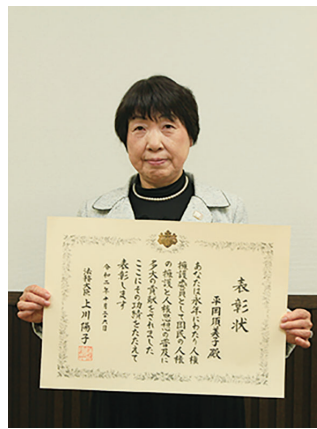 表彰状
平岡頂美子殿
あなたは永年にわたり人権
擁護委員として国民の人権
の擁護と人権思想の普及に
多大の貢献をされました
ここにその功績をたたえて
表彰します
令和二年十月二十六日
法務大臣 上川陽子